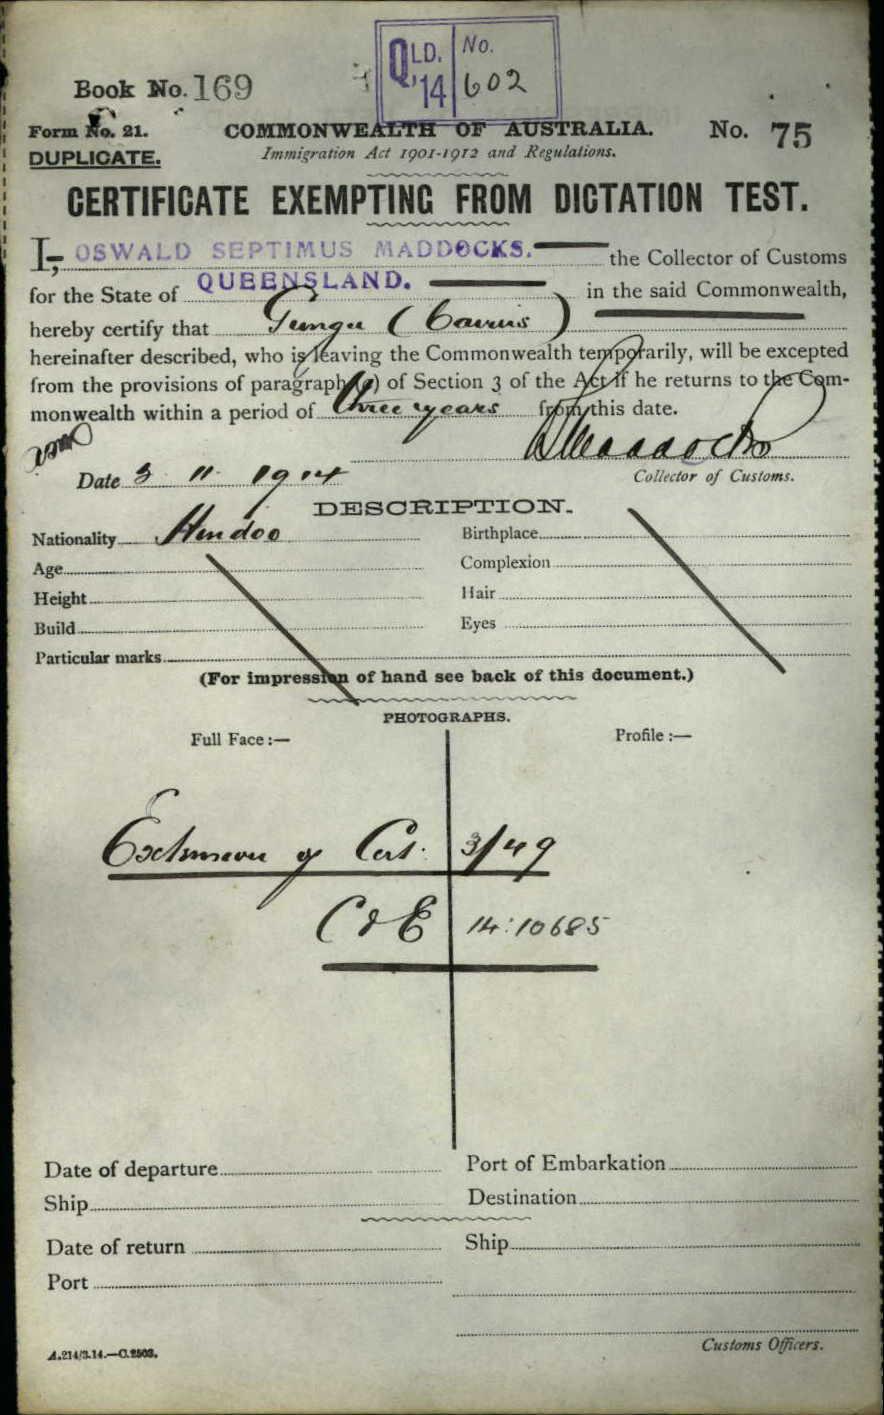 QLD. No.
'14 602
Book No. 169
Form No. 21. COMMONWEALTH OF AUSTRALIA. No. 75
DUPLICATE. Immigration Act 1901-1912 and Regulations.
CERTIFICATE EXEMPTING FROM DICTATION TEST.
I, OSWALD SEPTIMUS MADDOCKS. the Collector of Customs
for the State of QUEENSLAND. in the said Commonwealth,
hereby certify that Gunga (Cairns)
hereinafter described, who is leaving the Commonwealth temporarily, will be excepted
from the provisions of paragraph (a) of Section 3 of the Act if he returns to the Com-
monwealth within a period of three years from this date.
Maddocks
Date 3 11 1914 Collector of Customs.
DESCRIPTION.
Nationality Hindoo Birthplace
Age Complexion
Height Hair
Build Eyes
Particular marks
(For impression of hand see back of this document.)
PHOTOGRAPHS.
Full Face :— Profile :—
Extension of Cert. 3/49
C & E 14:10685
Date of departure Port of Embarkation
Ship Destination
Date of return Ship
Port
Customs Officers.
A.214/3.14.—C.2503.